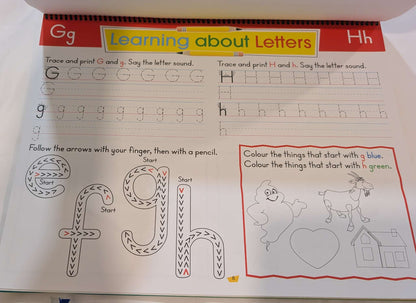 Gg
Learning about Letters
Hh
Trace and print G and g. Say the letter sound.
G G G G G G G
G
g g g g g g g g g
g
Trace and print H and h. Say the letter sound.
H H H H H H H H
H
h h h h h h h h h
h
Follow the arrows with your finger, then with a pencil.
Start
Start
Start
Start
e f g h
Colour the things that start with g blue.
Colour the things that start with h green.